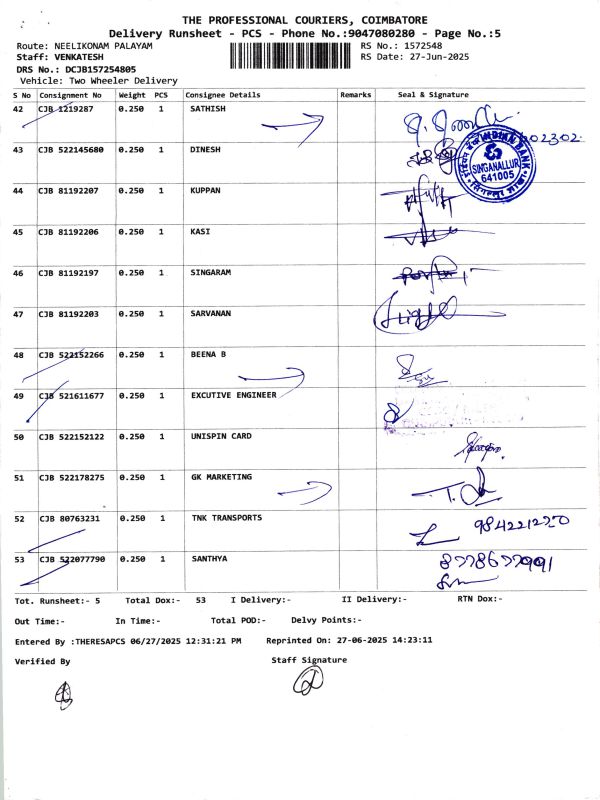 THE PROFESSIONAL COURIERS, COIMBATORE
Delivery Runsheet - PCS - Phone No.:9047080280 - Page No.:5
Route: NEELIKONAM PALAYAM RS No.: 1572548
Staff: VENKATESH RS Date: 27-Jun-2025
DRS No.: DCJB157254805
Vehicle: Two Wheeler Delivery
S No Consignment No Weight PCS Consignee Details Remarks Seal & Signature
42 CJB 1219287 0.250 1 SATHISH
INDIAN BANK
SINGANALLUR
641005
43 CJB 522145680 0.250 1 DINESH
44 CJB 81192207 0.250 1 KUPPAN
45 CJB 81192206 0.250 1 KASI
46 CJB 81192197 0.250 1 SINGARAM
47 CJB 81192203 0.250 1 SARVANAN
48 CJB 522152266 0.250 1 BEENA B
49 CJB 521611677 0.250 1 EXCUTIVE ENGINEER
50 CJB 522152122 0.250 1 UNISPIN CARD
51 CJB 522178275 0.250 1 GK MARKETING
52 CJB 80763231 0.250 1 TNK TRANSPORTS 9842212220
53 CJB 522077790 0.250 1 SANTHYA
Tot. Runsheet:- 5 Total Dox:- 53 I Delivery:- II Delivery:- RTN Dox:-
Out Time:- In Time:- Total POD:- Delvy Points:-
Entered By :THERESAPCS 06/27/2025 12:31:21 PM Reprinted On: 27-06-2025 14:23:11
Verified By Staff Signature